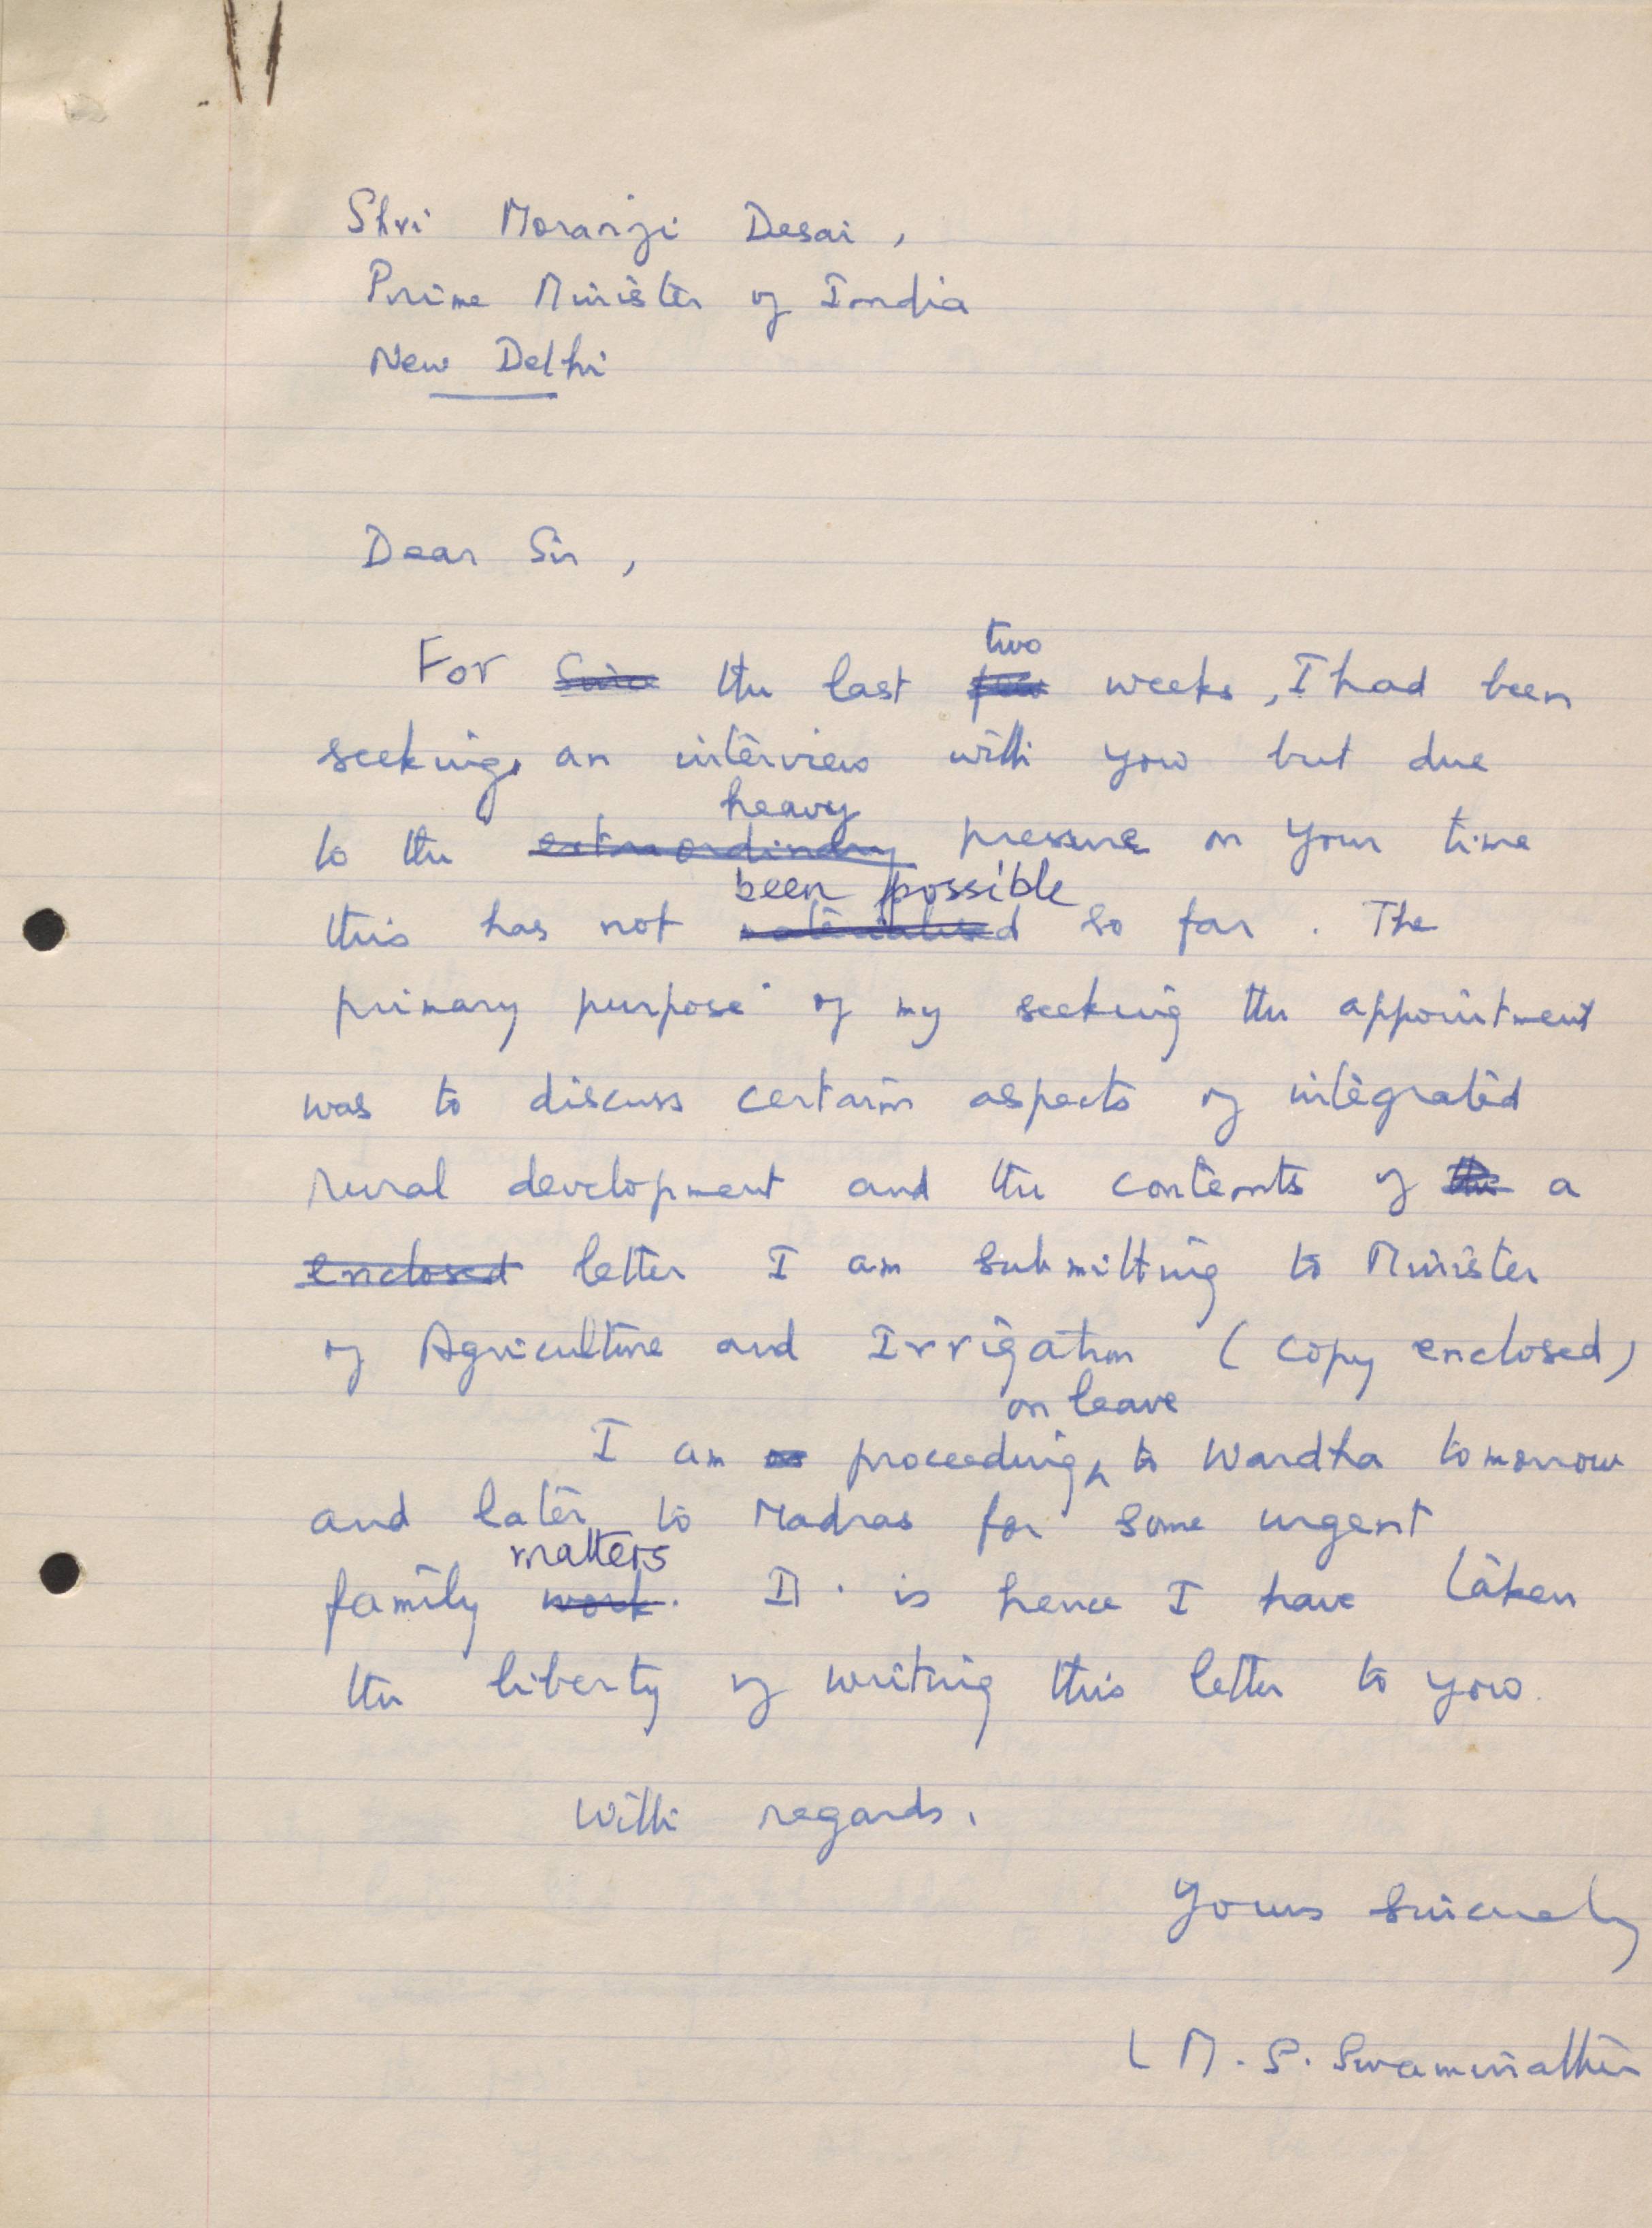 Shri Morarji Desai,
Prime Minister of India
New Delhi
Dear Sir,
two
For Since the last few weeks, I had been
seeking an interview with you but due
heavy
to the extraordinary pressure on your time
been possible
this has not materialised so far. The
primary purpose of my seeking the appointment
was to discuss certain aspects of integrated
rural development and the contents of the a
enclosed letter I am submitting to Minister
of Agriculture and Irrigation (copy enclosed)
on leave
I am proceeding to Wardha tomorrow
and later to Madras for some urgent
matters
family work. It is hence I have taken
the liberty of writing this letter to you.
With regards,
Yours sincerely
(M. S. Swaminathan